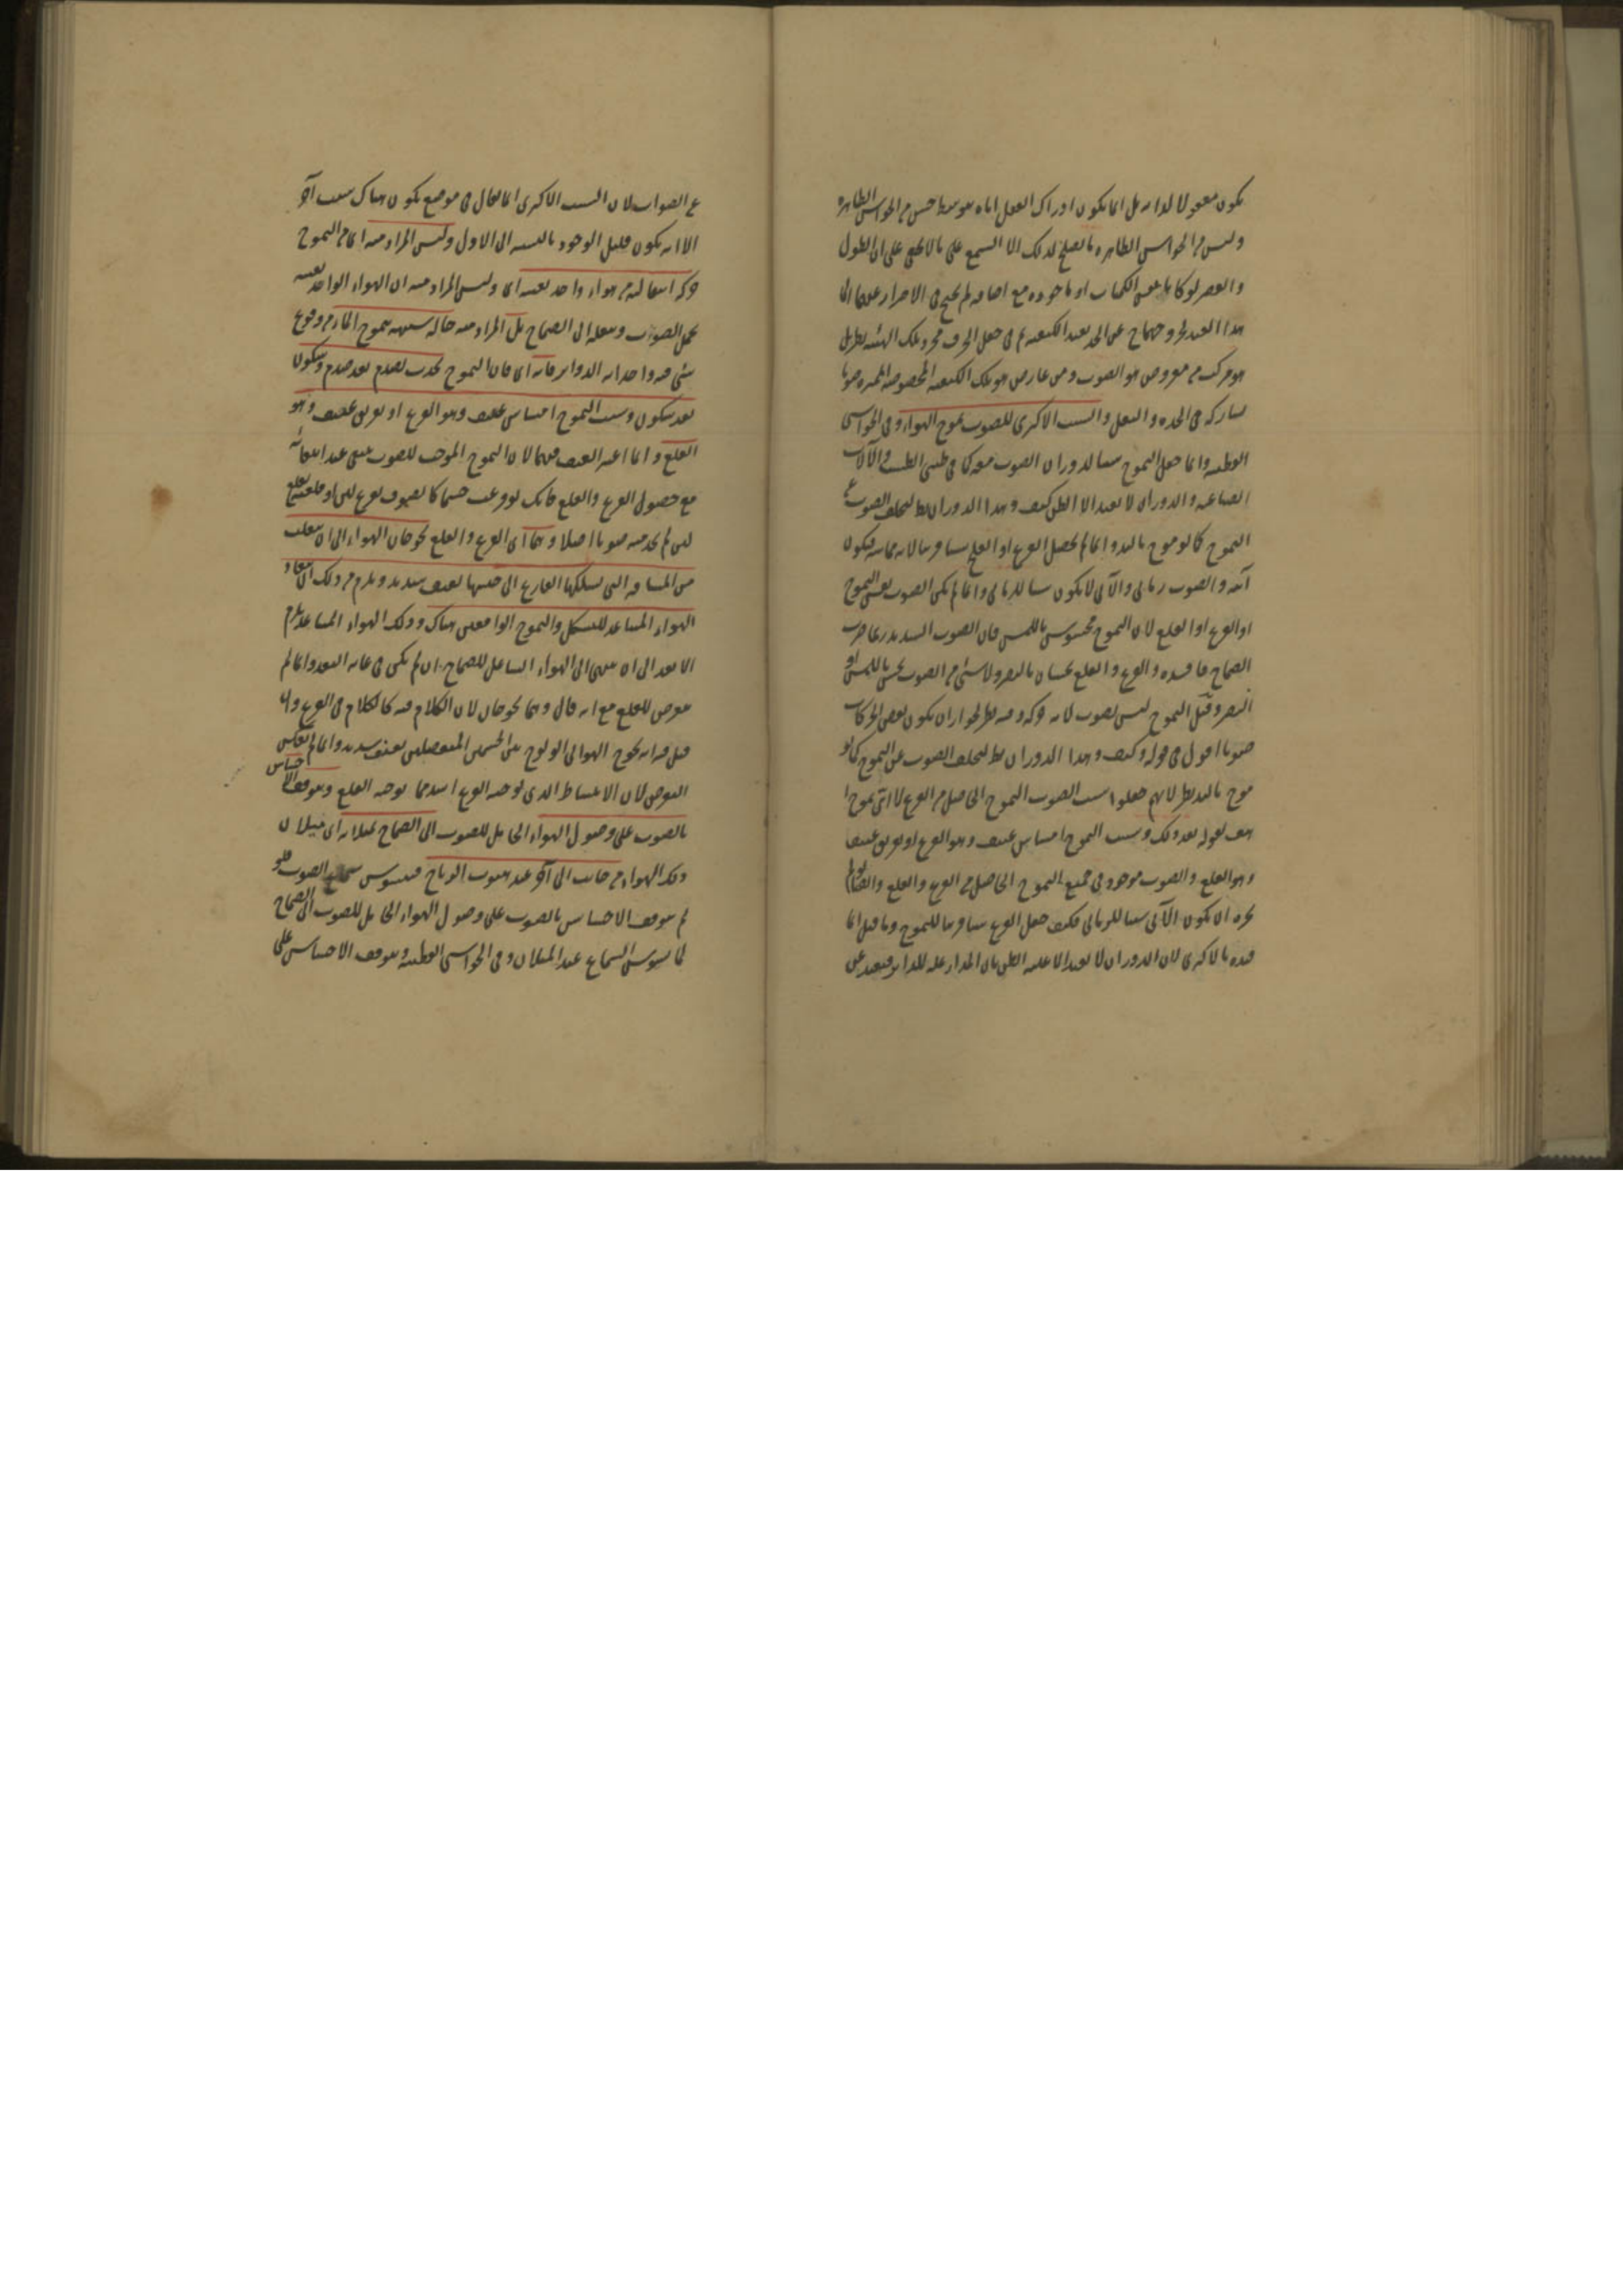 يكون معقولا لذاته بل انما يكون ادراك العقل اياه بتوسط حس من الحواس الظاهرة
وليس من الحواس الظاهرة ما يصلح لذلك الا السمع على ما لا يخفى على ان الطول
والقصر لو كانا من الكميات او ماخوذة مع اضافة لم يحتج في الاحتراز عنهما الى
هذا القيد لخروجهما عن الحد بقيد الكيفية ثم في جعل الحرف مجرد تلك الهيئة نظر بل
هو مركب من معروض هو الصوت ومن عارض هو تلك الكيفية المخصوصة المميزة صوتا
يشاركه في الحدة والثقل والسبب الاكثري للصوت تموج الهواء وفي الحواشي
القطبية وانما جعل التموج سببا لدوران الصوت معه كما في طنين الطست والآلات
الصناعية والدوران لا يفيد الا الظن كيف وهذا الدوران بط لتخلف الصوت عن
التموج كما لو موج باليد وانما لم يجعل القرع او القلع سببا قريبا لانه مماسة فيكون
آنية والصوت زماني والآني لا يكون سببا للزماني وانما لم يكن الصوت نفس التموج
او القرع او القلع لان التموج محسوس باللمس فان الصوت الشديد ربما ضرب
الصماخ فافسده والقرع والقلع يحسان بالبصر ولا شئ من الصوت يحس باللمس او
البصر وقيل التموج ليس بصوت لانه حركة وفيه نظر لجواز ان يكون بعض الحركات
صوتا اقول في قوله وكيف وهذا الدوران بط لتخلف الصوت عن التموج كما لو
موج باليد نظر لانهم جعلوا سبب الصوت التموج الحاصل من القرع لا اي تموج ا
بعد ذلك وسبب التموج امساس عنيف وهو القرع او تفريق عنيف
وهو القلع والصوت موجود في جميع التموج الحاصل من القرع والقلع
ان يكون الآني سببا للزماني فكيف جعل القرع سببا قريبا للتموج وما قيل انما
قيده بالاكثري لان الدوران لا يفيد الا غلبة الظن بان المدار علة للدائر فبعيد عن
الصواب لان السبب الاكثري انما يقال في موضع يكون هناك سبب آخر
الا انه يكون قليل الوجود بالنسبة الى الاول وليس المراد منه اي من التموج
حركة انتقالية من هواء واحد بعينه اي وليس المراد منه ان الهواء الواحد بعينه
يحمل الصوت وينقله الى الصماخ بل المراد منه حالة شبيهة بتموج الماء من وقوع
شئ فيه واحداثه الدواير فانه اي فان التموج يحدث بصدم بعد صدم وسكون
بعد سكون وسبب التموج امساس عنيف وهو القرع او تفريق عنيف وهو
القلع وانما اعتبر العنف فيهما لان التموج الموجب للصوت ينتفي عند انتفائه
مع حصول القرع والقلع فانك لو قرعت جسما كالصوف بقرع لين او قلعته بقلع
لين لم يحدث منه صوت اصلا وهما اي القرع والقلع يحوجان الهواء الى ان ينقلب
من المسافة التي يسلكها القارع الى جنبيها بعنف شديد ويلزم من ذلك انقياد
الهواء المتباعد للتشكل والتموج الواقعين هناك وذلك الهواء المتباعد يلزم
الابعد الى ان ينتهي الى الهواء الشاغل للصماخ ان لم يكن في غاية البعد وانما لم
يتعرض للقلع مع انه قال وهما يحوجان لان الكلام فيه كالكلام في القرع وان
قيل فيه انه يحوج الهواء الى الولوج بين الجسمين المنفصلين بعنف شديد وانما لم يعكس
التعرض لان الانبساط الذي يوجبه القرع اشد مما يوجبه القلع ويتوقف الاحساس
بالصوت على وصول الهواء الحامل للصوت الى الصماخ لميلانه اي ميلان
ذلك الهواء من جانب الى آخر عند هبوب الرياح فيتشوش سماع الصوت فلو
لم يتوقف الاحساس بالصوت على وصول الهواء الحامل للصوت الى الصماخ
لما تشوش السماع عند الميلان وفي الحواشي القطبية ويتوقف الاحساس على